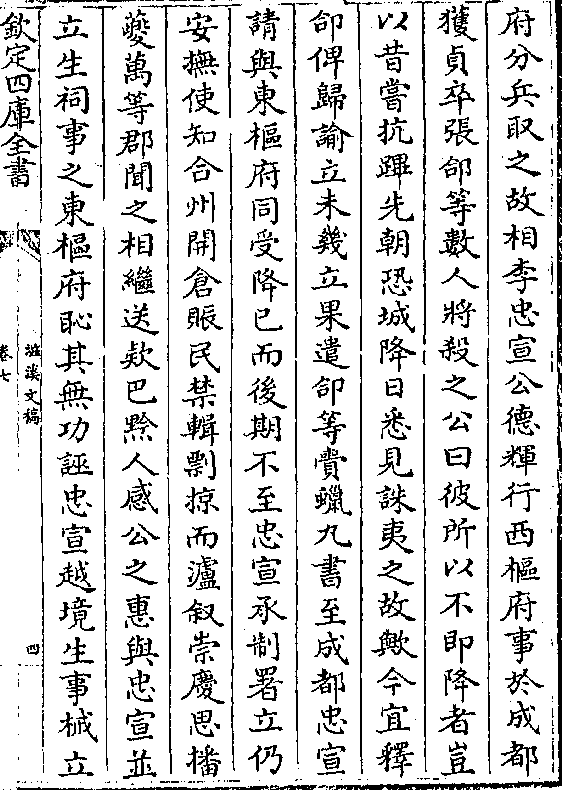 府分兵取之故相李忠宣公德輝行西樞府事於成都
獲貞卒張郃等數人將殺之公曰彼所以不即降者豈
以昔嘗抗蹕先朝恐城降日悉見誅夷之故歟今宜釋
郃俾歸諭立未幾立果遣郃等賫蠟丸書至成都忠宣
請與東樞府同受降已而後期不至忠宣承制署立仍
安撫使知合州開倉賑民禁輯剽掠而瀘叙崇慶思播
夔萬等郡聞之相繼送欵巴黔人感公之惠與忠宣並
立生祠事之東樞府恥其無功誣忠宣越境生事械立
欽定四庫全書
卷七
四